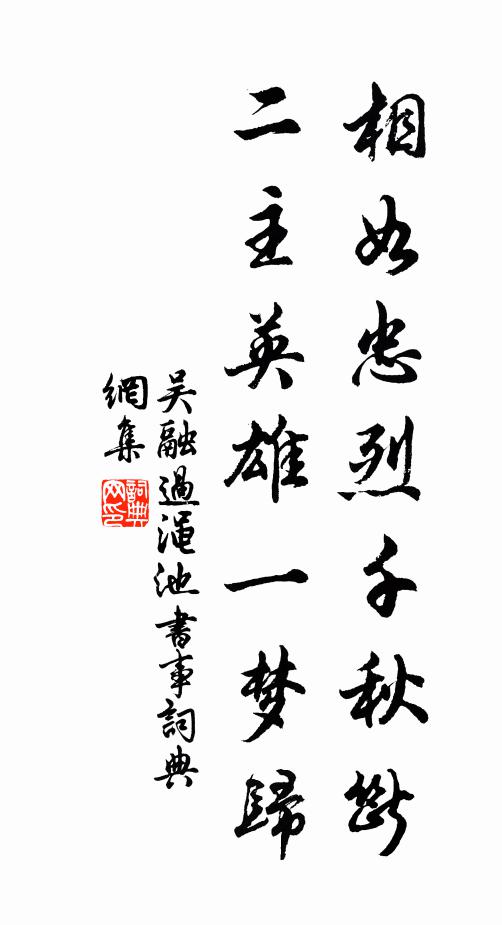 相如忠烈千秋斷
二主英雄一梦歸
吴融過渑池書事詞典
網集
詞典網印